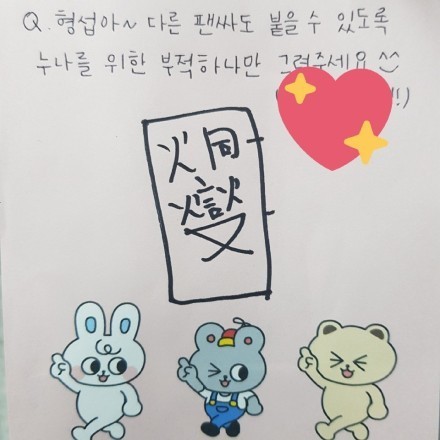 Q. 형섭아~ 다른 팬싸도 붙을 수 있도록
누나를 위한 부적하나만 그려주세요 ^^
!!)
烔
燮